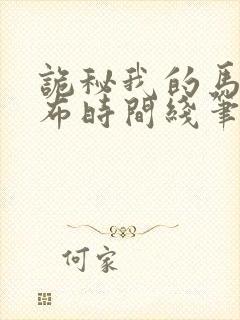 詭秘我的馬
布時間綫筆
何家